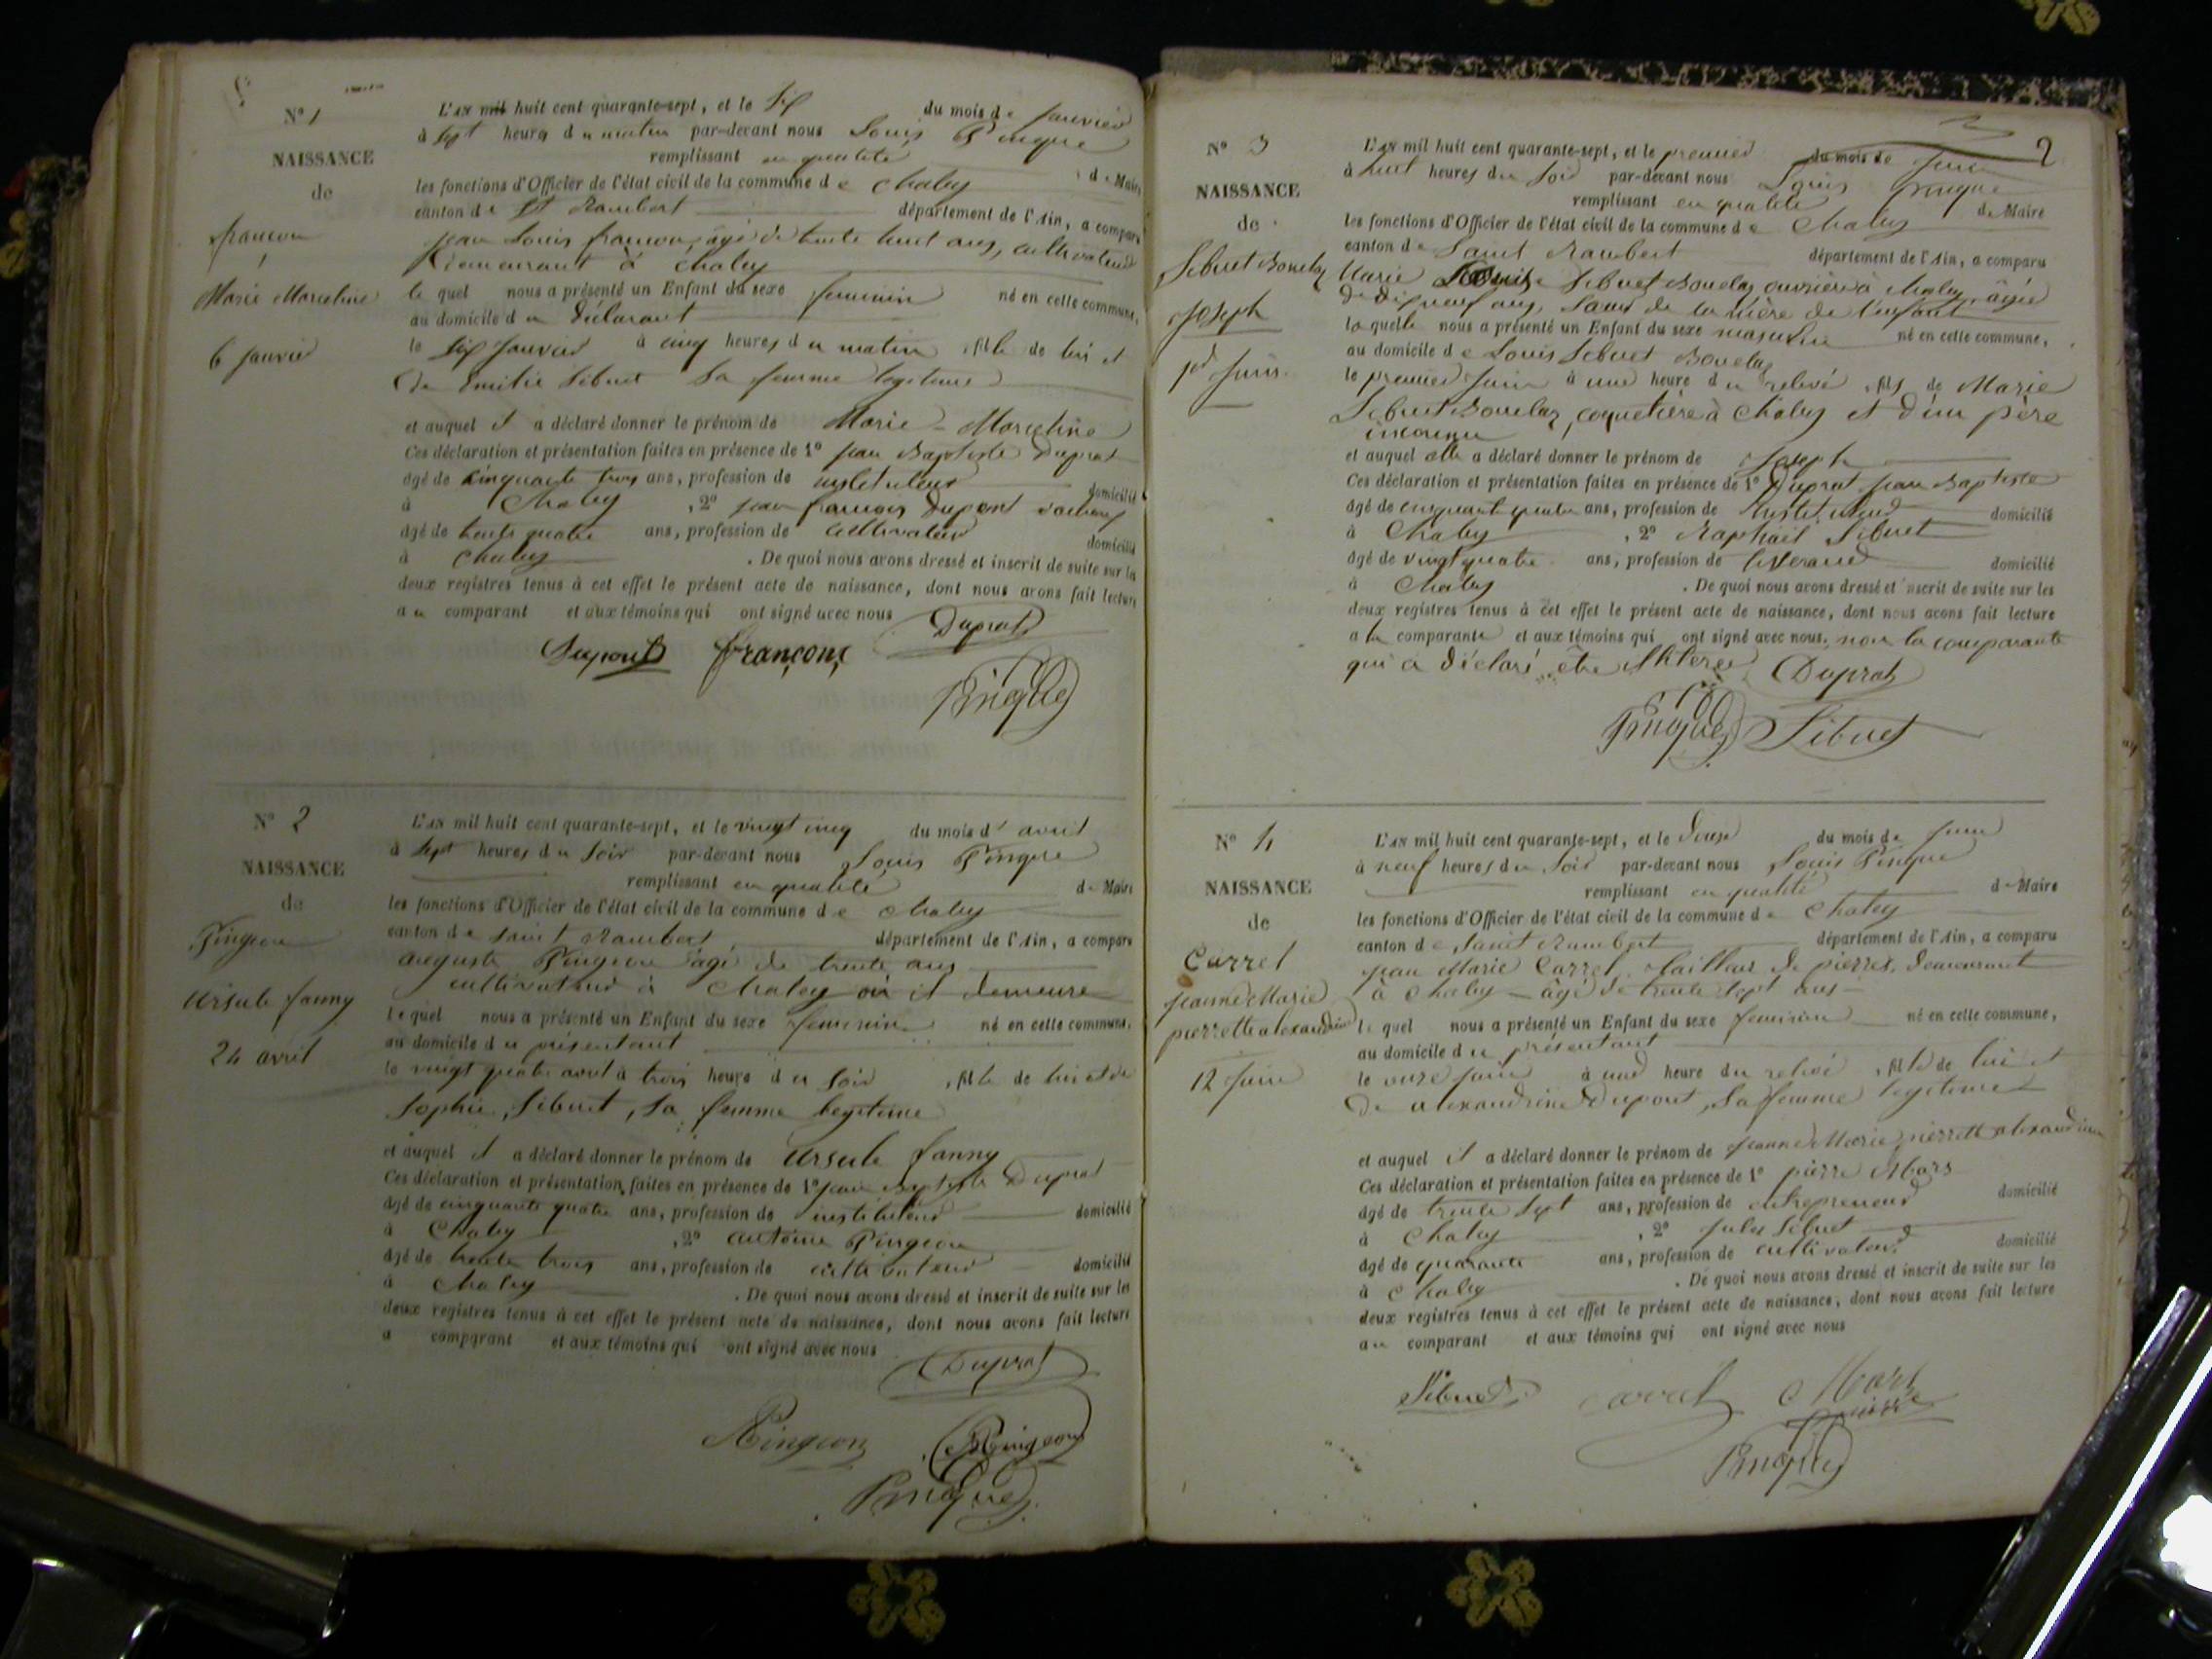 N° 1
NAISSANCE
de
françon
Marie Marceline
6 janvier
L'AN mil huit cent quarante-sept, et le six du mois de janvier
à sept heures du matin par-devant nous Louis Pingue
remplissant en qualité de Maire
les fonctions d'Officier de l'état civil de la commune de Chaley
canton de St Rambert département de l'Ain, a comparu
jean Louis françon, âgé de trente huit ans, cultivateur
demeurant à Chaley
lequel nous a présenté un Enfant du sexe feminin né en cette commune,
au domicile du déclarant
le six janvier à cinq heures du matin, fille de lui et
de Emilie Sibuet sa femme legitime
et auquel il a déclaré donner le prénom de Marie-Marceline
Ces déclaration et présentation faites en présence de 1° jean Baptiste Duprat
âgé de cinquante trois ans, profession de instituteur domicilié
à Chaley, 2° jean françois Dupont
âgé de trente quatre ans, profession de cultivateur domicilié
à Chaley. De quoi nous avons dressé et inscrit de suite sur les
deux registres tenus à cet effet le présent acte de naissance, dont nous avons fait lecture
au comparant et aux témoins qui ont signé avec nous
Duprat
Dupont françon
Pingue
N° 2
NAISSANCE
de
Pingeon
Ursule fanny
24 avril
L'AN mil huit cent quarante-sept, et le vingt cinq du mois d'avril
à sept heures du soir par-devant nous Louis Pingue
remplissant en qualité de Maire
les fonctions d'Officier de l'état civil de la commune de Chaley
canton de Saint Rambert département de l'Ain, a comparu
auguste Pingeon âgé de trente ans
cultivateur à Chaley où il demeure
lequel nous a présenté un Enfant du sexe feminin né en cette commune,
au domicile du présentant
le vingt quatre avril à trois heures du soir, fille de lui et de
Sophie Sibuet, sa femme legitime
et auquel il a déclaré donner le prénom de Ursule fanny
Ces déclaration et présentation faites en présence de 1° jean Baptiste Duprat
âgé de cinquante quatre ans, profession de instituteur domicilié
à Chaley, 2° antoine Pingeon
âgé de trente trois ans, profession de cultivateur domicilié
à Chaley. De quoi nous avons dressé et inscrit de suite sur les
deux registres tenus à cet effet le présent acte de naissance, dont nous avons fait lecture
a comparant et aux témoins qui ont signé avec nous
Duprat
Pingeon Pingeon
Pingue
2
N° 3
NAISSANCE
de
Sibuet Bouclay
Joseph
1er Juin
L'AN mil huit cent quarante-sept, et le premier du mois de Juin
à huit heures du soir par-devant nous Louis Pingue
remplissant en qualité de Maire
les fonctions d'Officier de l'état civil de la commune de Chaley
canton de Saint Rambert département de l'Ain, a comparu
Marie Sibuet Bouclay ouvrière à Chaley, âgée
de dix neuf ans, soeur de la mère de l'enfant
laquelle nous a présenté un Enfant du sexe masculin né en cette commune,
au domicile de Louis Sibuet Bouclay
le premier Juin à une heure du relevé, fils de Marie
Sibuet Bouclay, coquetière à Chaley et d'un père
inconnu
et auquel elle a déclaré donner le prénom de Joseph
Ces déclaration et présentation faites en présence de 1° Duprat jean Baptiste
âgé de cinquante quatre ans, profession de instituteur domicilié
à Chaley, 2° Raphaël Sibuet
âgé de vingt quatre ans, profession de tisserand domicilié
à Chaley. De quoi nous avons dressé et inscrit de suite sur les
deux registres tenus à cet effet le présent acte de naissance, dont nous avons fait lecture
a la comparante et aux témoins qui ont signé avec nous, non la comparante
qui a déclaré être illiterée
Duprat
Pingue Sibuet
N° 4
NAISSANCE
de
Carrel
Jeanne Marie
pierrette alexandrine
12 Juin
L'AN mil huit cent quarante-sept, et le douze du mois de Juin
à neuf heures du soir par-devant nous Louis Pingue
remplissant en qualité de Maire
les fonctions d'Officier de l'état civil de la commune de Chaley
canton de Saint Rambert département de l'Ain, a comparu
jean Marie Carrel, tailleur de pierres, demeurant
à Chaley âgé de trente sept ans
lequel nous a présenté un Enfant du sexe feminin né en cette commune,
au domicile du présentant
le onze juin à une heure du relevé, fille de lui et
de alexandrine Dupont, sa femme legitime
et auquel il a déclaré donner le prénom de Jeanne Marie pierrette alexandrine
Ces déclaration et présentation faites en présence de 1° pierre Mars
âgé de trente sept ans, profession de entrepreneur domicilié
à Chaley, 2° jules Sibuet
âgé de quarante ans, profession de cultivateur domicilié
à Chaley. De quoi nous avons dressé et inscrit de suite sur les
deux registres tenus à cet effet le présent acte de naissance, dont nous avons fait lecture
au comparant et aux témoins qui ont signé avec nous
Sibuet carrel Mars
pierre
Pingue